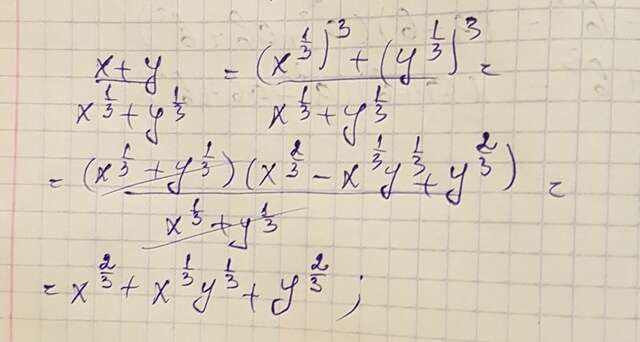 \frac{x+y}{x^{\frac{1}{3}}+y^{\frac{1}{3}}} = \frac{(x^{\frac{1}{3}})^3+(y^{\frac{1}{3}})^3}{x^{\frac{1}{3}}+y^{\frac{1}{3}}} =
= \frac{(x^{\frac{1}{3}}+y^{\frac{1}{3}})(x^{\frac{2}{3}}-x^{\frac{1}{3}}y^{\frac{1}{3}}+y^{\frac{2}{3}})}{x^{\frac{1}{3}}+y^{\frac{1}{3}}} =
= x^{\frac{2}{3}}+x^{\frac{1}{3}}y^{\frac{1}{3}}+y^{\frac{2}{3}};